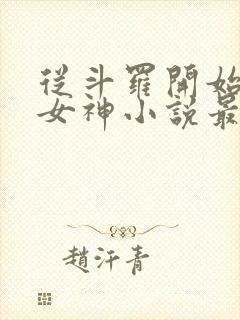 從斗羅開始
女神小說最
趙汗青